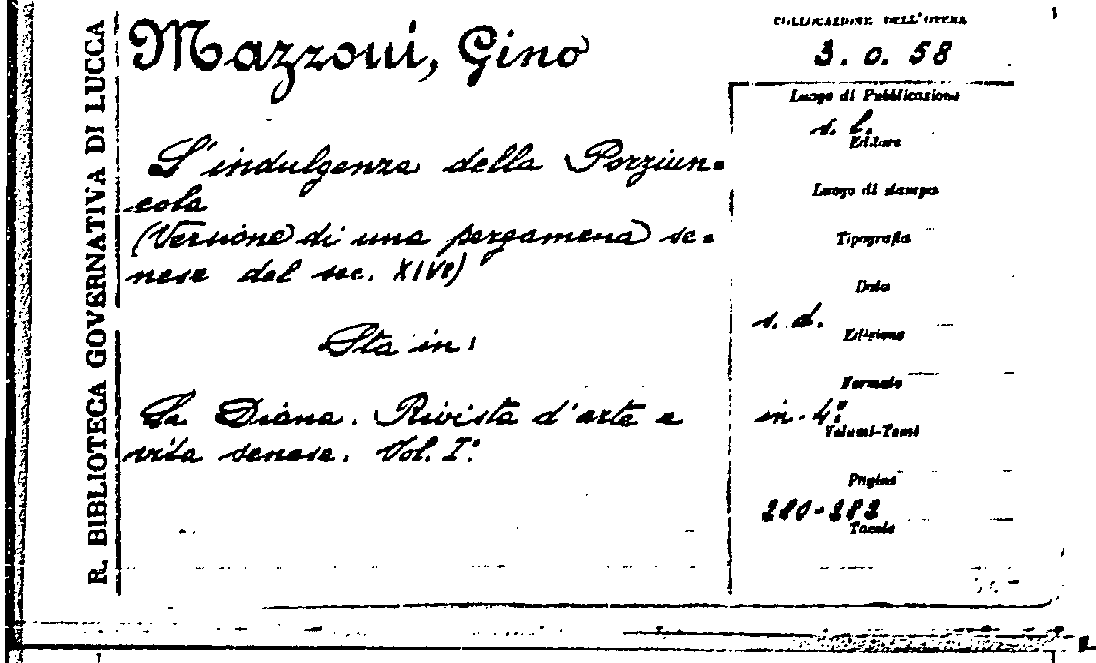 R. BIBLIOTECA GOVERNATIVA DI LUCCA
Mazzoni, Gino
L'indulgenza della Porziun-
cola
(Versione di una pergamena se-
nese del sec. XIVº)
Sta in:
La Diana. Rivista d'arte e
vita senese. Vol. Iº.
COLLOCAZIONE DELL'OPERA
3. 0. 58
Luogo di Pubblicazione
s. l.
Editore
Luogo di stampa
Tipografia
Data
s. d.
Edizione
Formato
in-4º
Volumi-Tomi
Pagine
280-282
Tavole